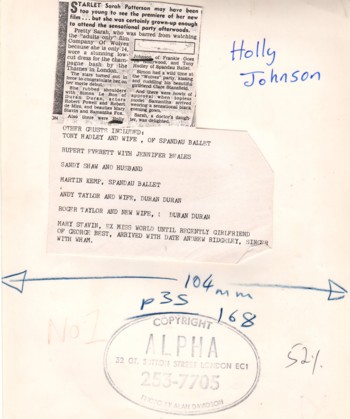 STARLET: Sarah Patterson may have been
too young to see the premiere of her new
film ... but she was certainly grown-up enough
to attend the sensational party afterwards.
Pretty Sarah, who was barred from watching
the "adults only" film
Company Of Wolves
because she is only
wore a stunning low-
cut dress for the cham-
pagne bash by the
Thames in London.
The stars turned out in
force to congratulate her on
her movie debut.
She rubbed shoulders
with Simon Le Bon of
Duran Duran, actors
Robert Powell and Robert
de Niro, and beauties Mary
Stavin and Samantha Fox.
Also there were Holly
of Frankie Goes
To Hollywood, and Tony
Hadley of Spandau Ballet.
Simon had a wild time at
the "Wolves" party, kissing
and cuddling his beautiful
girlfriend Claire Stansfield.
And there were howls of
approval when topless
model Samantha arrived
wearing a sensational black
evening gown.
Sarah, a doctor's daugh-
ter, was delighted.
Holly
Johnson
OTHER GUESTS INCLUDED:
TONY HADLEY AND WIFE, OF SPANDAU BALLET
RUPERT EVERETT WITH JENNIFER BEALES
SANDY SHAW AND HUSBAND
MARTIN KEMP, SPANDAU BALLET
ANDY TAYLOR AND WIFE, DURAN DURAN
ROGER TAYLOR AND NEW WIFE, DURAN DURAN
MARY STAVIN, EX MISS WORLD UNTIL RECENTLY GIRLFRIEND
OF GEORGE BEST, ARRIVED WITH DATE ANDREW RIDGELEY, SINGER
WITH WHAM.
104mm
p35
168
No 1
52%
COPYRIGHT
ALPHA
STREET LONDON EC1
253-7705
PHOTO BY ALAN DAVIDSON